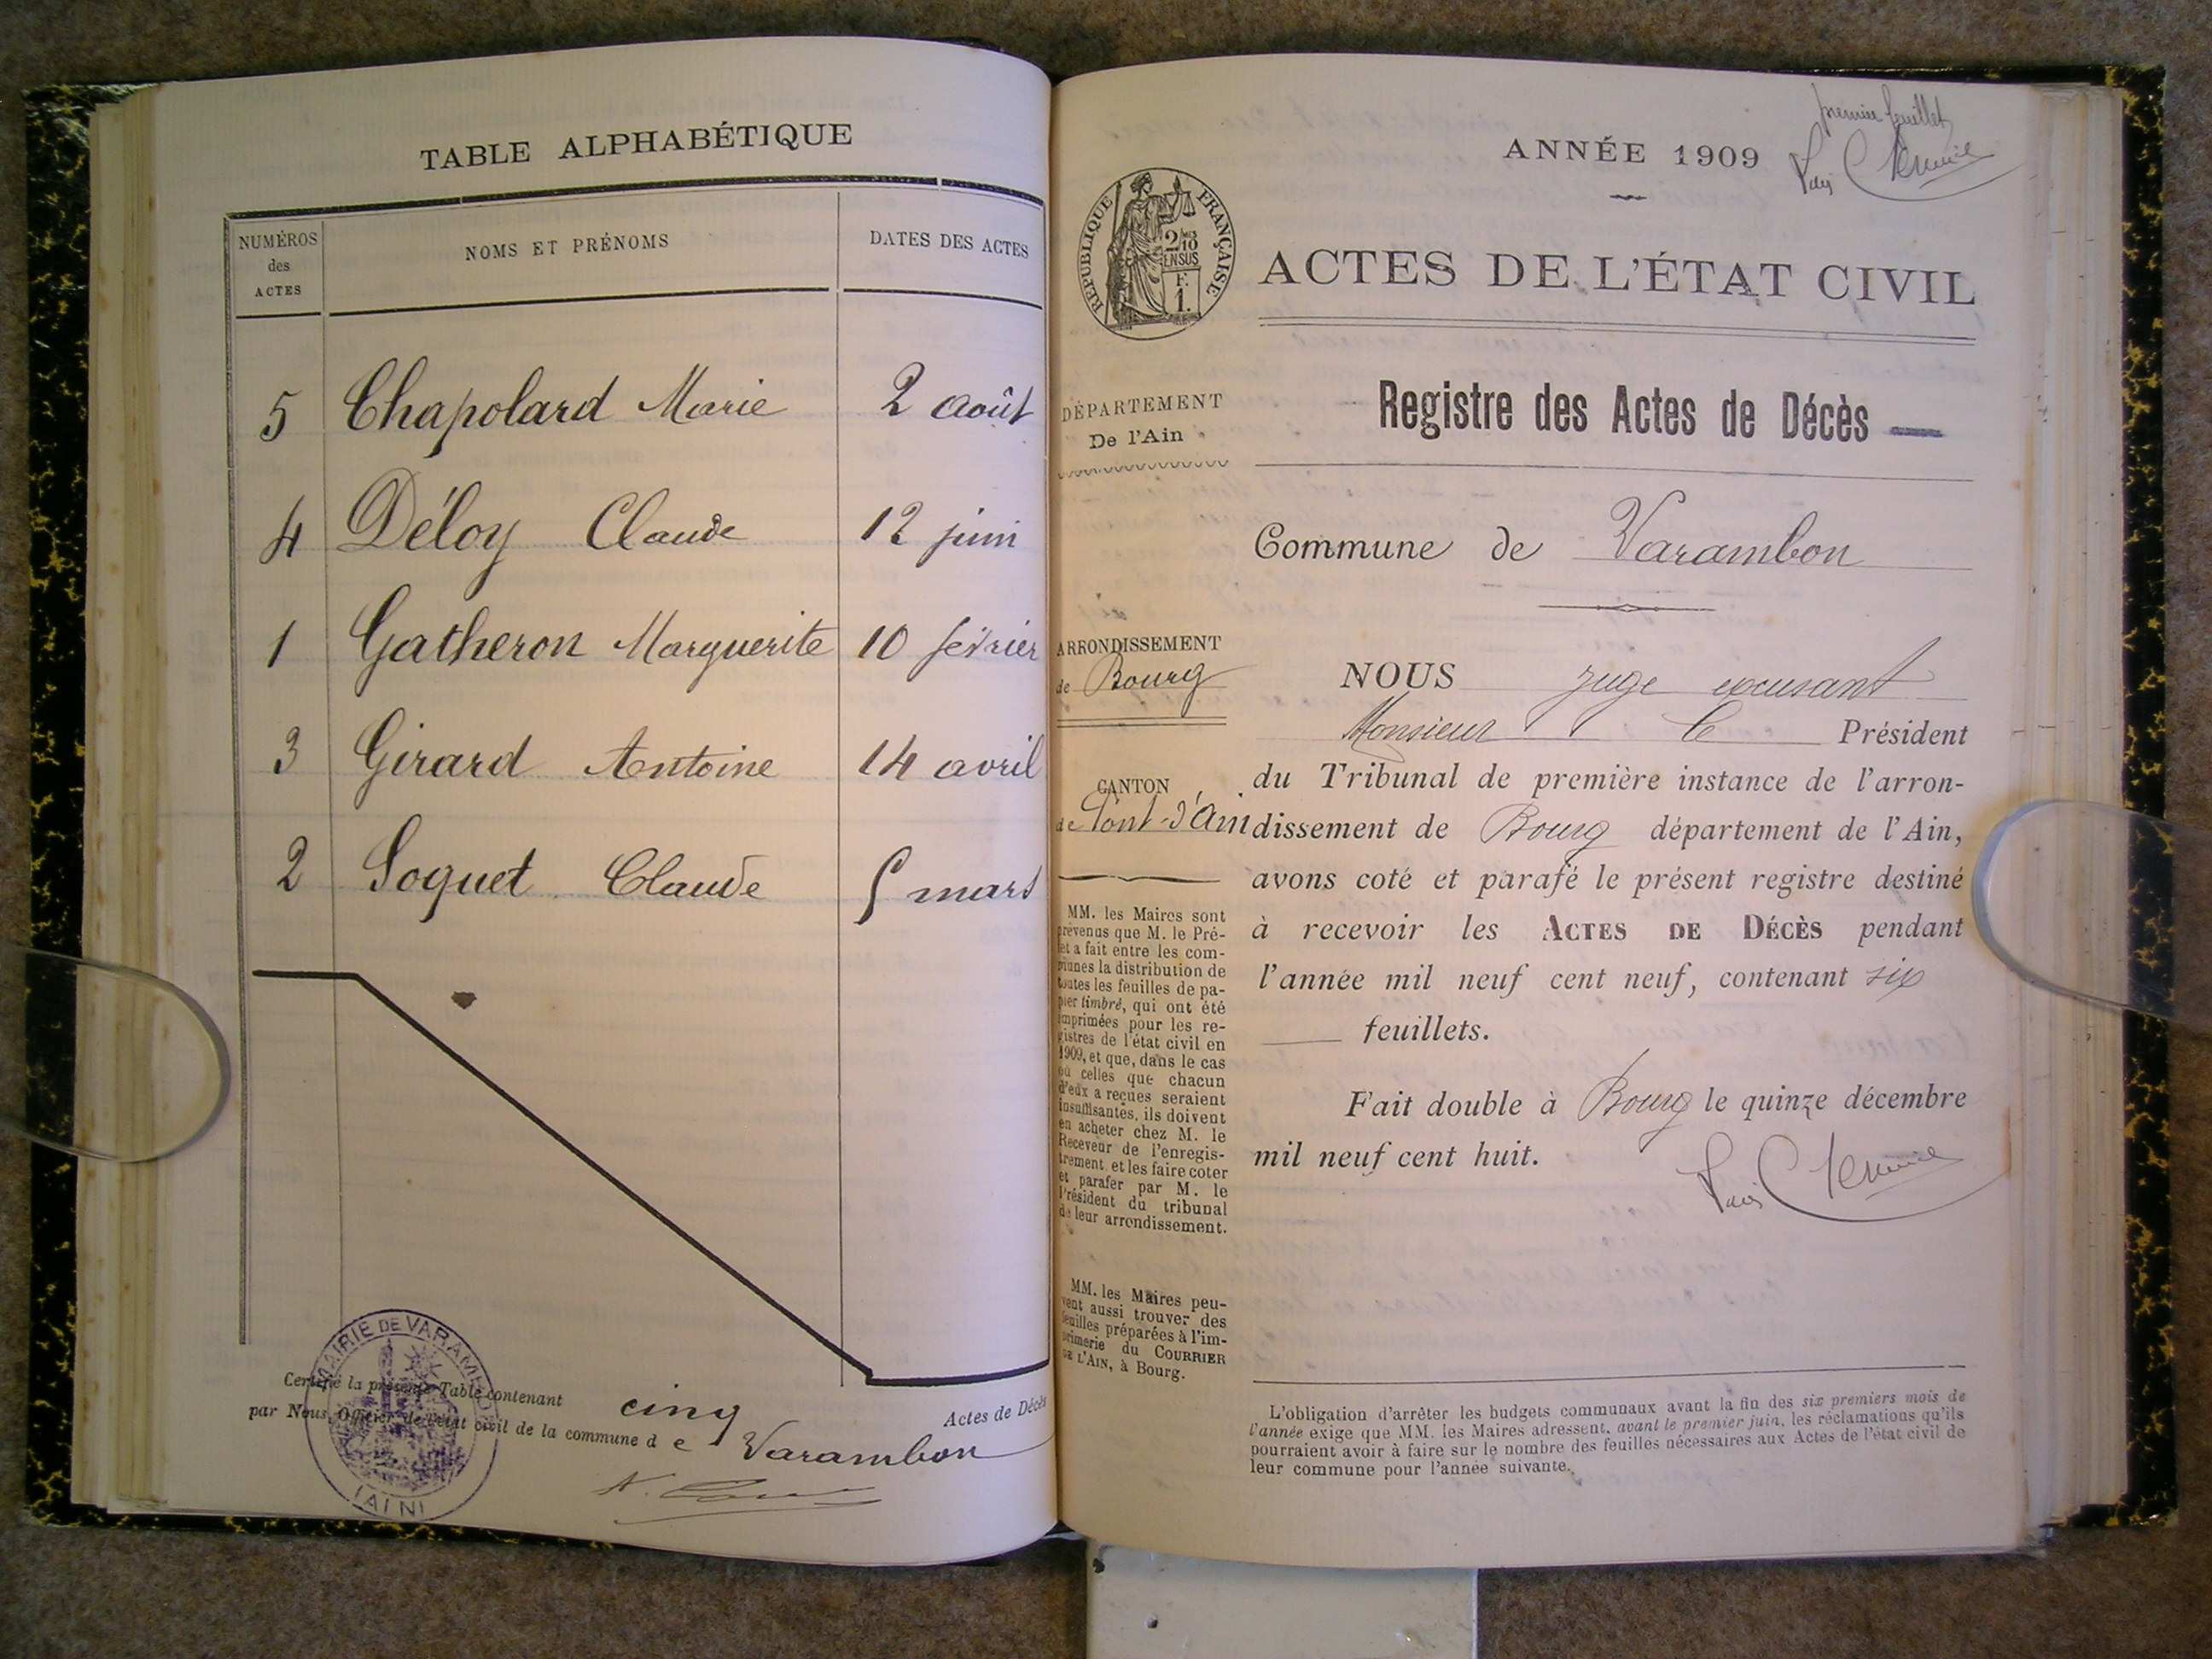 TABLE ALPHABÉTIQUE
NUMÉROS
des
ACTES
NOMS ET PRÉNOMS
DATES DES ACTES
5 Chapolard Marie 2 août
4 Déloy Claude 12 juin
1 Gatheron Marguerite 10 février
3 Girard Antoine 14 avril
2 Soquet Claude 5 mars
MAIRIE DE VARAMBON
(AIN)
Certifié la présente Table contenant cinq Actes de Décès
par Nous, Officier de l'état civil de la commune de Varambon
premier feuillet
ANNÉE 1909
RÉPUBLIQUE FRANÇAISE
2/10
EN SUS
F.
1.
ACTES DE L'ÉTAT CIVIL
DÉPARTEMENT
De l'Ain
ARRONDISSEMENT
de Bourg
CANTON
de Pont-d'Ain
MM. les Maires sont
prévenus que M. le Pré-
fet a fait entre les com-
munes la distribution de
toutes les feuilles de pa-
pier timbré, qui ont été
imprimées pour les re-
gistres de l'état civil en
1909, et que, dans le cas
où celles que chacun
d'eux a reçues seraient
insuffisantes, ils doivent
en acheter chez M. le
Receveur de l'enregis-
trement et les faire coter
et parafer par M. le
Président du tribunal
de leur arrondissement.
MM. les Maires peu-
vent aussi trouver des
feuilles préparées à l'im-
primerie du COURRIER
DE L'AIN, à Bourg.
Registre des Actes de Décès
Commune de Varambon
NOUS juge excusant
Monsieur le Président
du Tribunal de première instance de l'arron-
dissement de Bourg département de l'Ain,
avons coté et parafé le présent registre destiné
à recevoir les ACTES DE DÉCÈS pendant
l'année mil neuf cent neuf, contenant six
feuillets.
Fait double à Bourg le quinze décembre
mil neuf cent huit.
L'obligation d'arrêter les budgets communaux avant la fin des six premiers mois de
l'année exige que MM. les Maires adressent, avant le premier juin, les réclamations qu'ils
pourraient avoir à faire sur le nombre des feuilles nécessaires aux Actes de l'état civil de
leur commune pour l'année suivante.